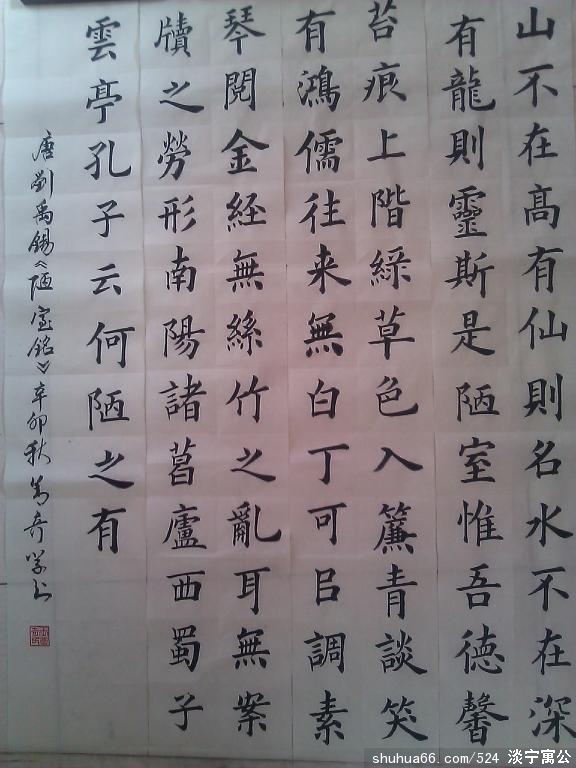 山不在高有仙則名水不在深
有龍則靈斯是陋室惟吾德馨
苔痕上階綠草色入簾青談笑
有鴻儒往来無白丁可㠯調素
琴閱金経無絲竹之亂耳無案
牘之勞形南陽諸葛廬西蜀子
雲亭孔子云何陋之有
唐劉禹錫《陋室銘》辛卯秋
shuhua66.com/524 淡宁寓公